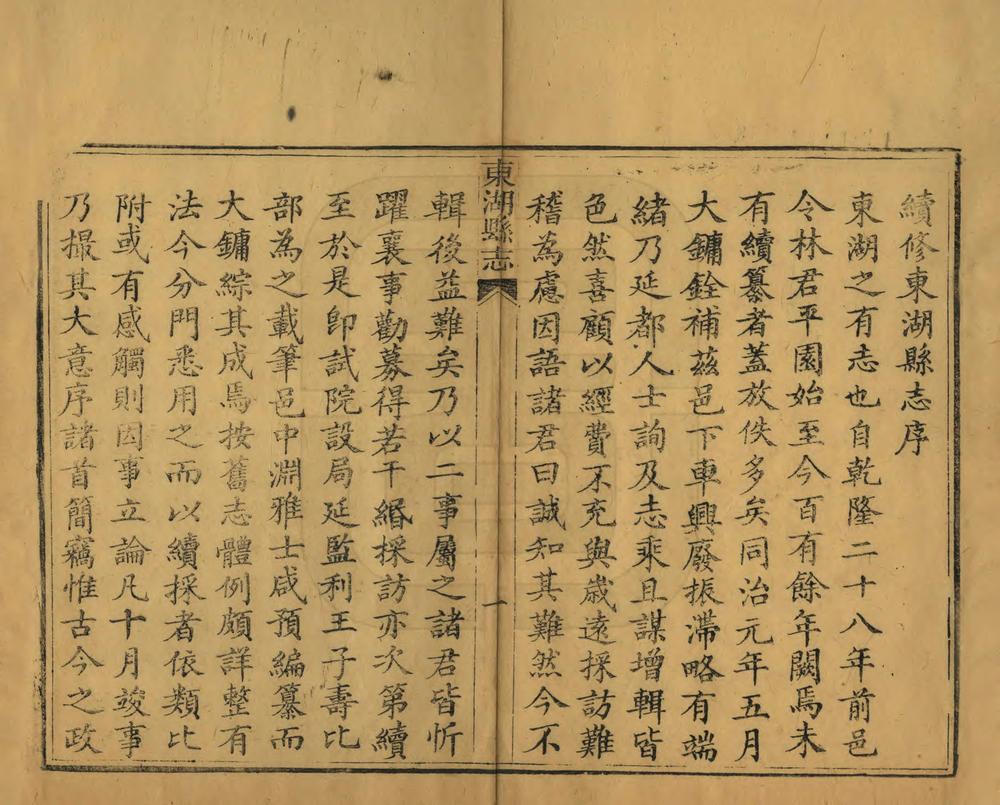 續修東湖縣志序
東湖之有志也自乾隆二十八年前邑
令林君平園始至今百有餘年闕焉未
有續纂者蓋放佚多矣同治元年五月
大鏞銓補茲邑下車興廢振滯略有端
緒乃延都人士詢及志乘且謀增輯皆
色然喜顧以經費不充與歲遠採訪難
稽為慮因語諸君曰誠知其難然今不
東湖縣志
一
輯後益難矣乃以二事屬之諸君皆忻
躍襄事勸募得若干緡採訪亦次第續
至於是即試院設局延監利王子壽比
部為之載筆邑中淵雅士咸預編纂而
大鏞綜其成焉按舊志體例頗詳整有
法今分門悉用之而以續採者依類比
附或有感觸則因事立論凡十月竣事
乃撮其大意序諸首簡竊惟古今之政